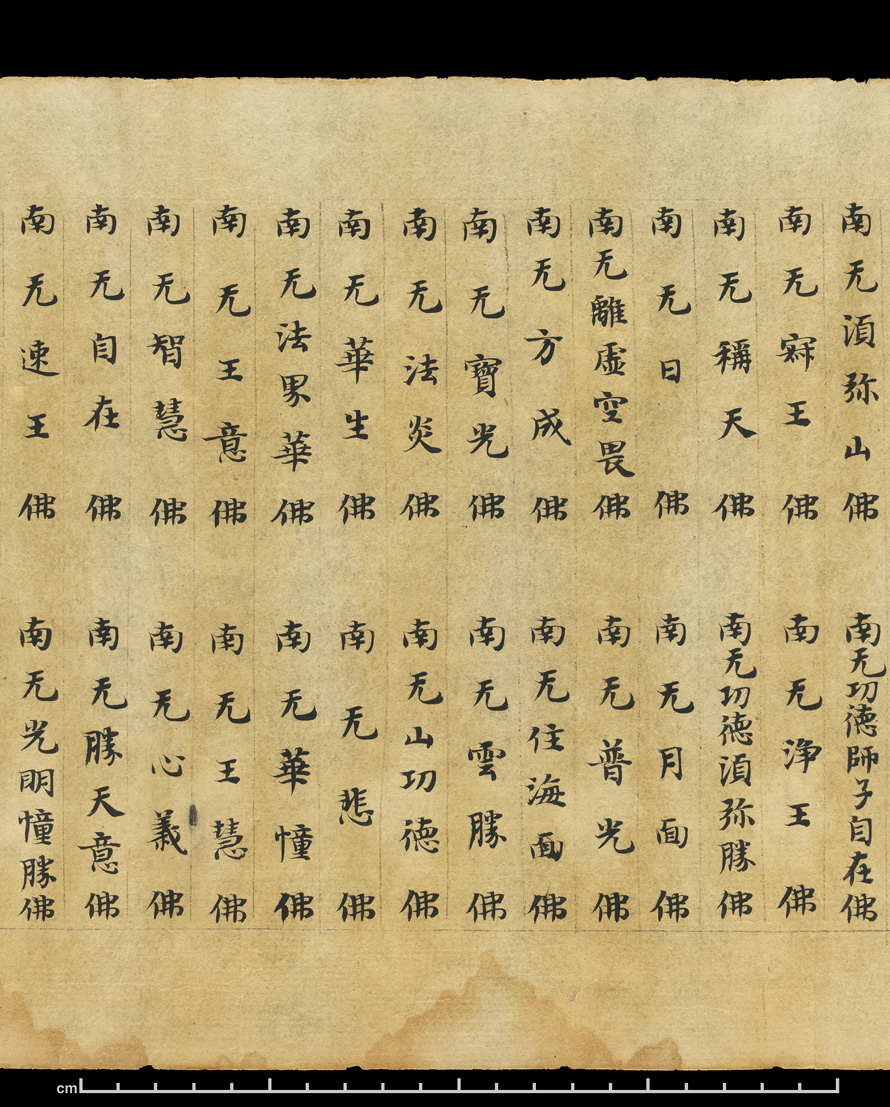 南无湏弥山佛　南无功德師子自在佛
南无寂王佛　南无浄王佛
南无稱天佛　南无功德湏弥勝佛
南无日佛　南无月面佛
南无離虛空畏佛　南无普光佛
南无方成佛　南无住海面佛
南无寶光佛　南无雲勝佛
南无法炎佛　南无山功德佛
南无華生佛　南无悲佛
南无法界華佛　南无華憧佛
南无王意佛　南无王慧佛
南无智慧佛　南无心義佛
南无自在佛　南无勝天意佛
南无速王佛　南无光明憧勝佛
cm